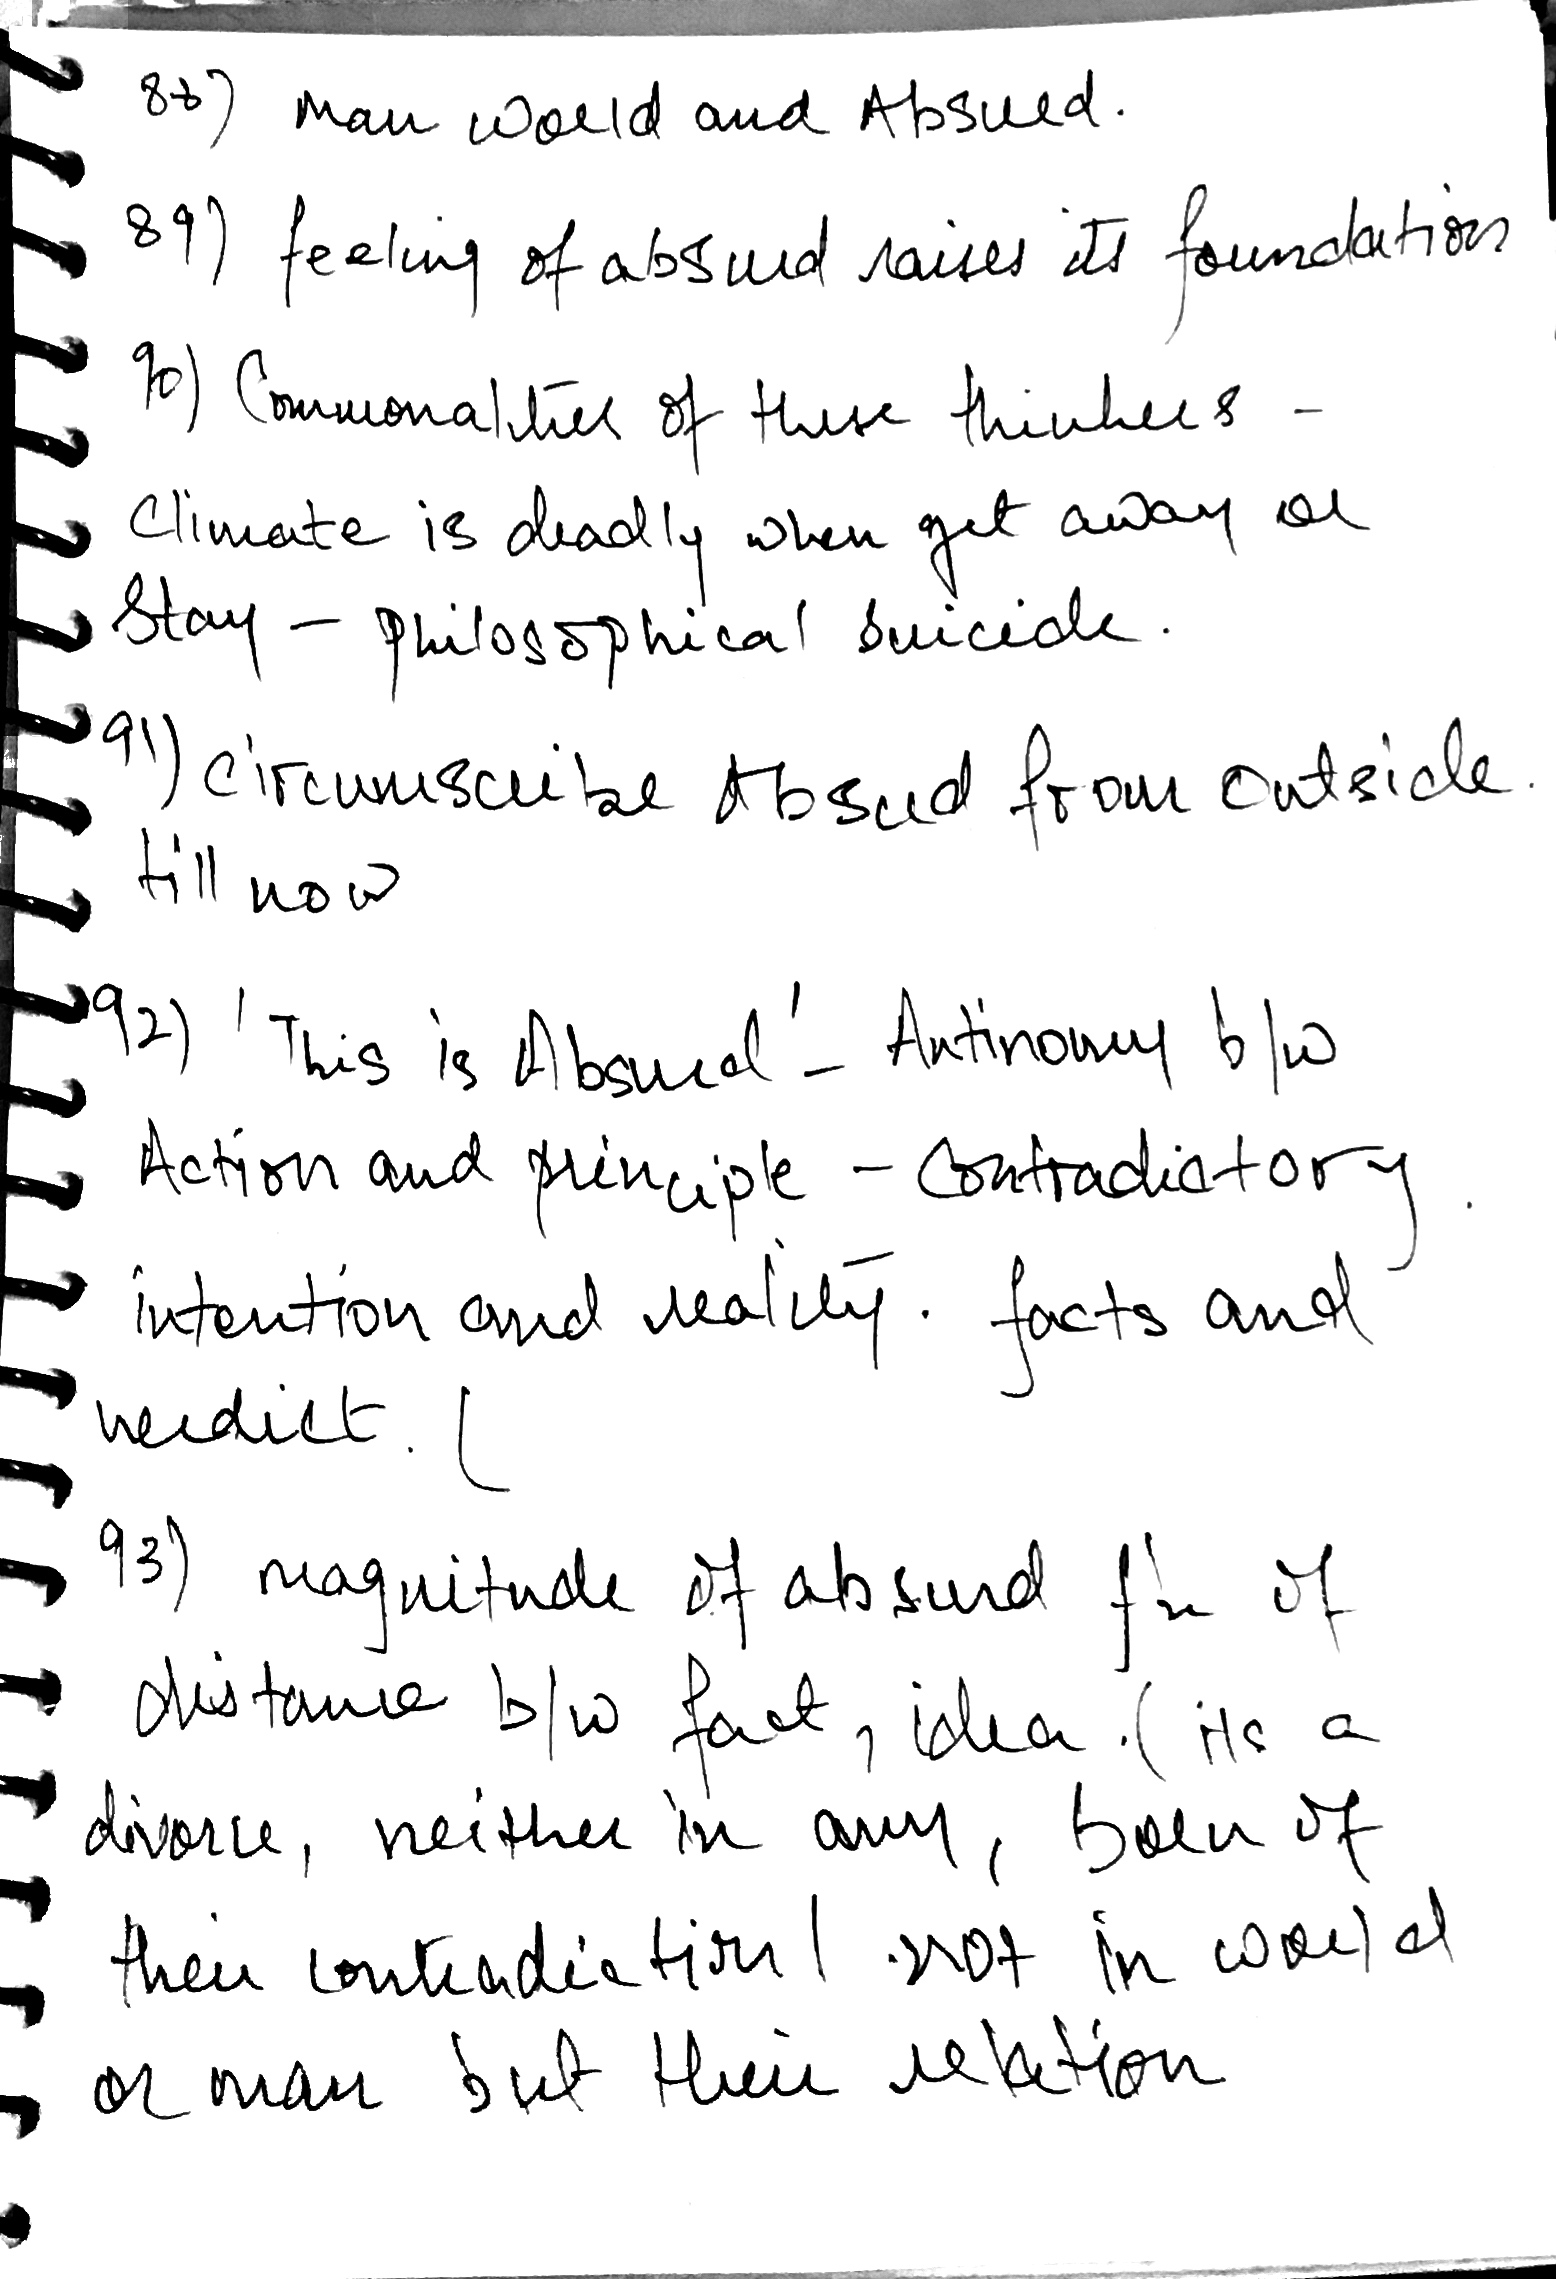 88) Man world and Absurd.
89) feeling of absurd raises its foundation
90) Commonalities of these thinkers -
Climate is deadly when get away or
Stay - philosophical suicide.
91) circumscribe Absurd from outside.
till now
92) 'This is Absurd' - Antinomy b/w
Action and principle - Contradictory.
intention and reality. facts and
verdict. (
93) magnitude of absurd f'n of
distance b/w fact, idea. ( its a
divorce, neither in any, born of
their contradiction ( not in world
or man but their relation